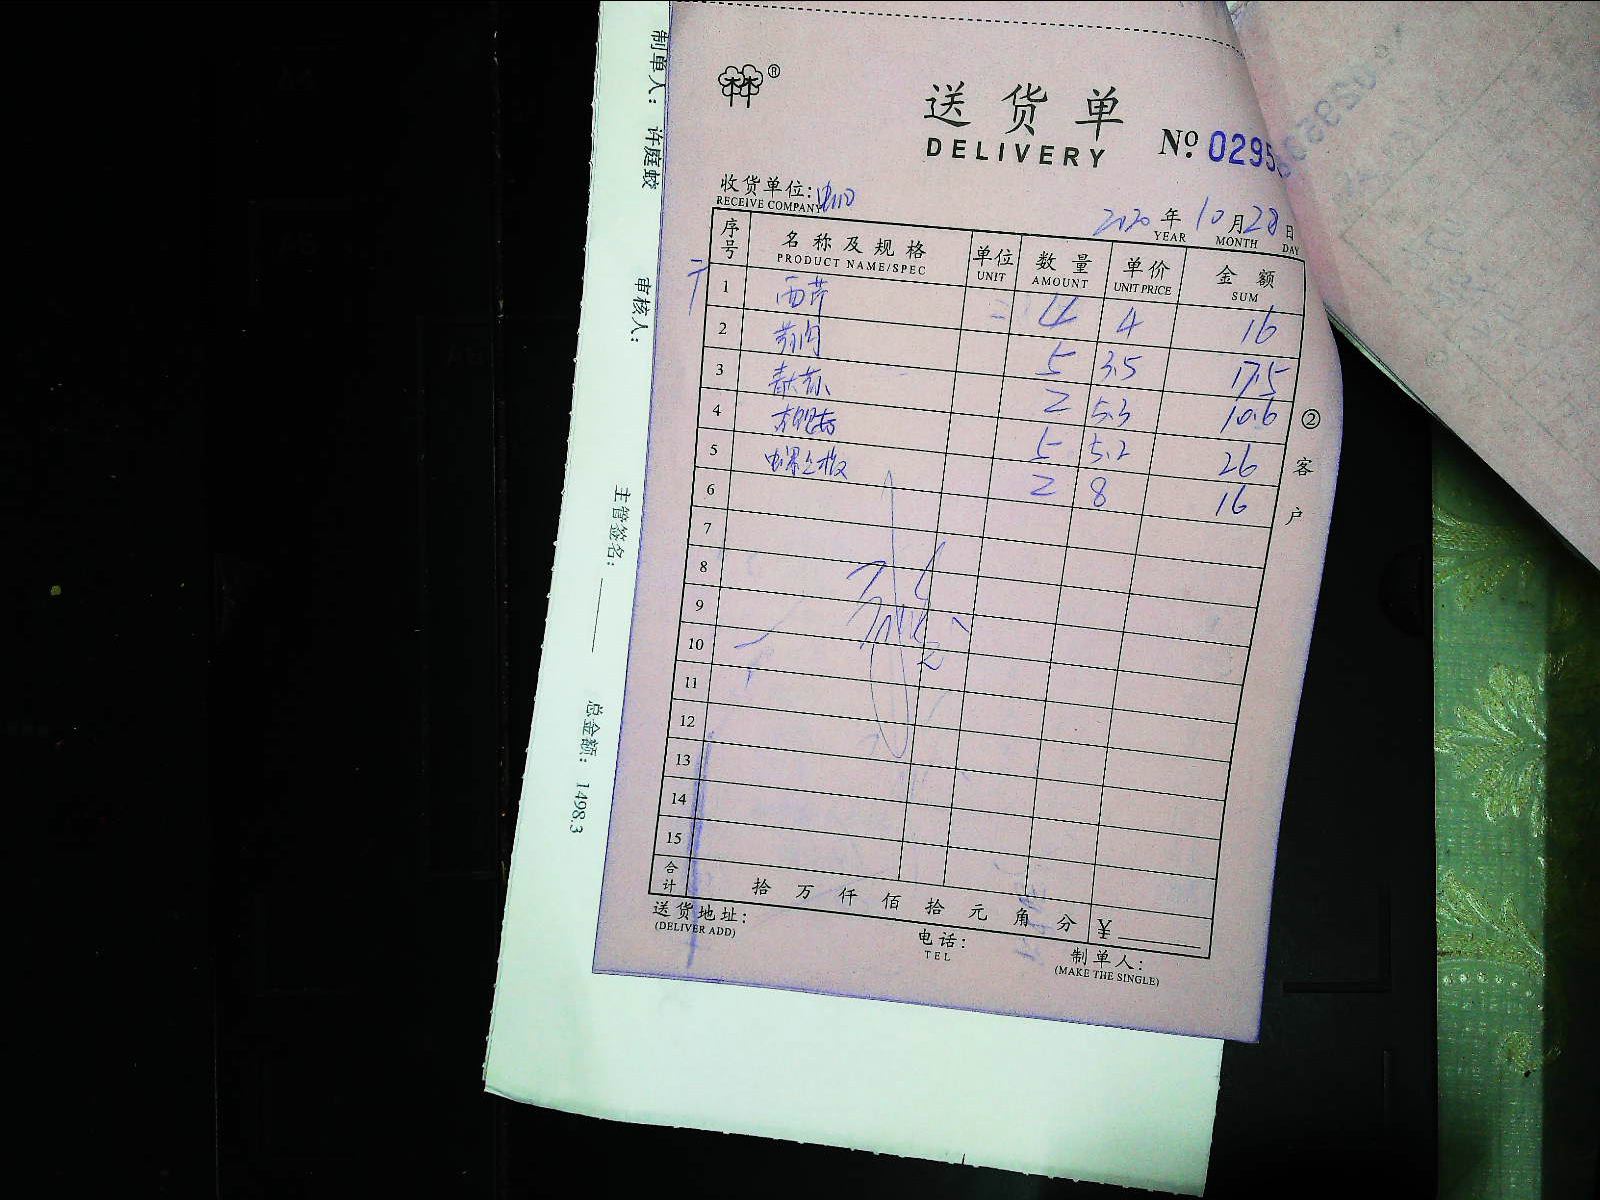 送货单
DELIVERY
№ 0295
收货单位:
RECEIVE COMPANY
2020 年 10 月 28 日
YEAR MONTH DAY
序号 名称及规格 单位 数量 单价 金额
PRODUCT NAME/SPEC UNIT AMOUNT UNIT PRICE SUM
1 西芹 4 4 16
2 5 3.5 17.5
3 2 5.3 10.6
4 5 5.2 26
5 2 8 16
6
7
8
9
10
11
12
13
14
15
合计 拾 万 仟 佰 拾 元 角 分 ¥
送货地址:
(DELIVER ADD)
电话:
TEL
制单人:
(MAKE THE SINGLE)
②客户
制单人: 许庭蛟
审核人:
主管签名:
总金额: 1498.3